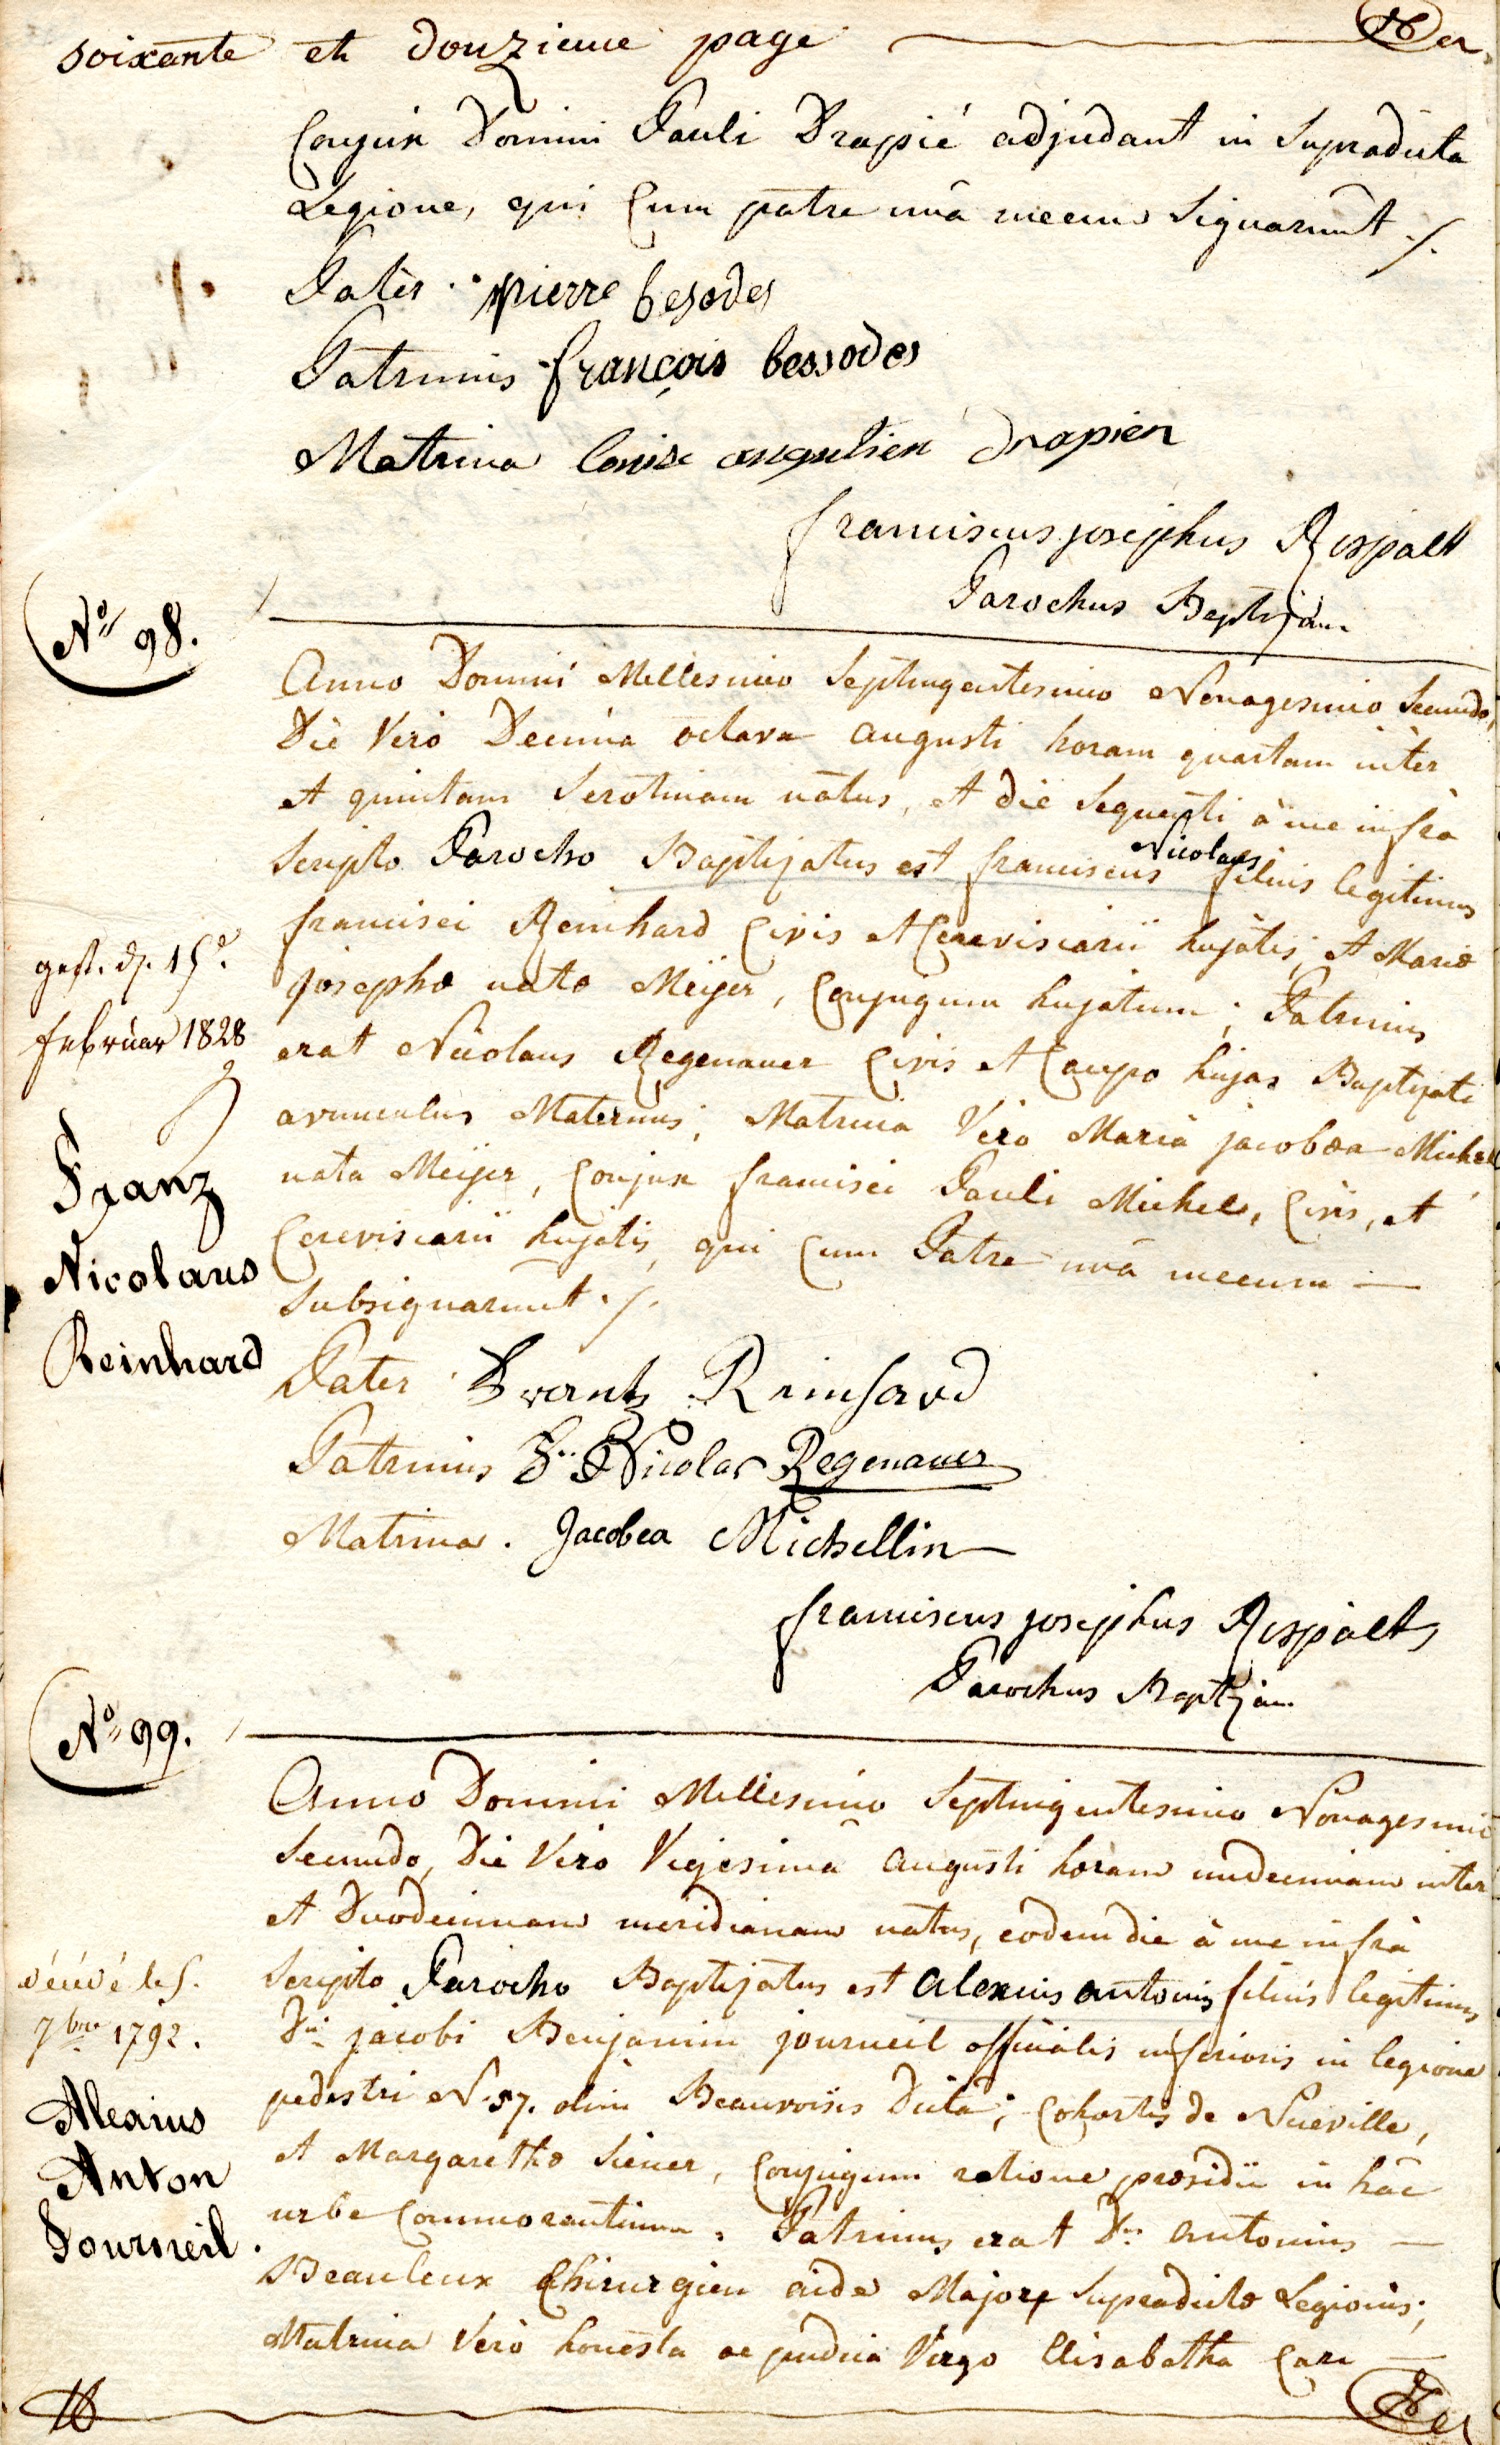 soixante et douzieme page
Conjux Domini Pauli Drapié adjudant in Supradicta
Legione, qui Cum patre unâ mecum Signarunt ./.
Pater. pierre besodes
Patrinus françois bessodes
Matrina louise drapier
franciscus josephus Rospatt
Parochus
No 98.
Anno Domini Millesimo Septingentesimo Nonagesimo Secundo,
Die Vero Decima octava augusti horam quartam inter
et quintam Serotinam natus, et die Sequenti à me infra
Scripto Parocho Baptizatus est franciscus Nicolaus filius legitimus
francisci Reinhard Civis et Cerevisiarii hujatis, et Mariæ
josephæ natæ Meijer, Conjugum hujatum; Patrinus
erat Nicolaus Regenauer Civis et Caupo hujas Baptizati
avunculus Maternus; Matrina Vero Maria jacobæa Michel
nata Meijer, Conjux francisci Pauli Michel, Civis, et
Cerevisiarii hujatis, qui Cum Patre unâ mecum —
Subsignarunt ./.
gest. d. 15.
februar 1828
Franz
Nicolaus
Reinhard
Pater Frantz Reinhard
Patrinus Nicolas Regenauer
Matrina. Jacobea Michellin
franciscus josephus Rospatt
Parochus
No 99.
Anno Domini Millesimo Septingentesimo Nonagesimo
Secundo, Die Vero Vigesima augusti horam undecimam inter
et Duodecimam meridianam natus, eodem die à me infra
Scripto Parocho Baptizatus est alexius antonius filius legitimus
Dni jacobi Benjamin journeil officialis inferioris in legione
pedestri N. 57. olim Beauvoisis dicta; Cohortis de Nueville,
et Margarethæ Siener, Conjugum ratione præsidii in hâc
urbe Commorantium. Patrinus erat Dns antonius —
Beauleux Chirurgien aide Major Supradictæ Legionis;
Matrina Vero honesta ac pudica Virgo Elisabetha Care —
décédé le 5.
7bre 1792.
Alexius
Anton
Journeil.